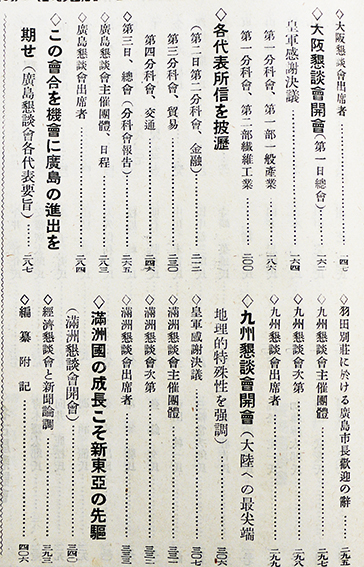 ◇大阪懇談會出席者……四七
◇大阪懇談會開會（第一日總會）……一六二
皇軍感謝決議……一六四
第一分科會、第一部一般產業……一六八
第一分科會、第二部纖維工業……二〇〇
◇各代表所信を披瀝
（第二日第二分科會、金融）……二一二
第三分科會、貿易……二三〇
第四分科會、交通……二四六
◇第三日、總會（分科會報告）……二六五
◇廣島懇談會主催團體、日程……二八三
◇廣島懇談會出席者……二八四
◇この會合を機會に廣島の進出を
期せ（廣島懇談會各代表要旨）……二八七
◇羽田別莊に於ける廣島市長歡迎の辭……二九五
◇九州懇談會主催團體……二九七
◇九州懇談會次第……二九八
◇九州懇談會出席者……二九九
◇九州懇談會開會（大陸への最尖端
地理的特殊性を强調）……三〇六
◇皇軍感謝決議……三〇七
◇滿洲懇談會主催團體……三三一
◇滿洲懇談會次第……三三二
◇滿洲懇談會出席者……三三三
◇滿洲國の成長こそ新東亞の先驅
（滿洲懇談會開會）……三四〇
◇經濟懇談會と新聞論調……三九三
◇編纂附記……四〇六